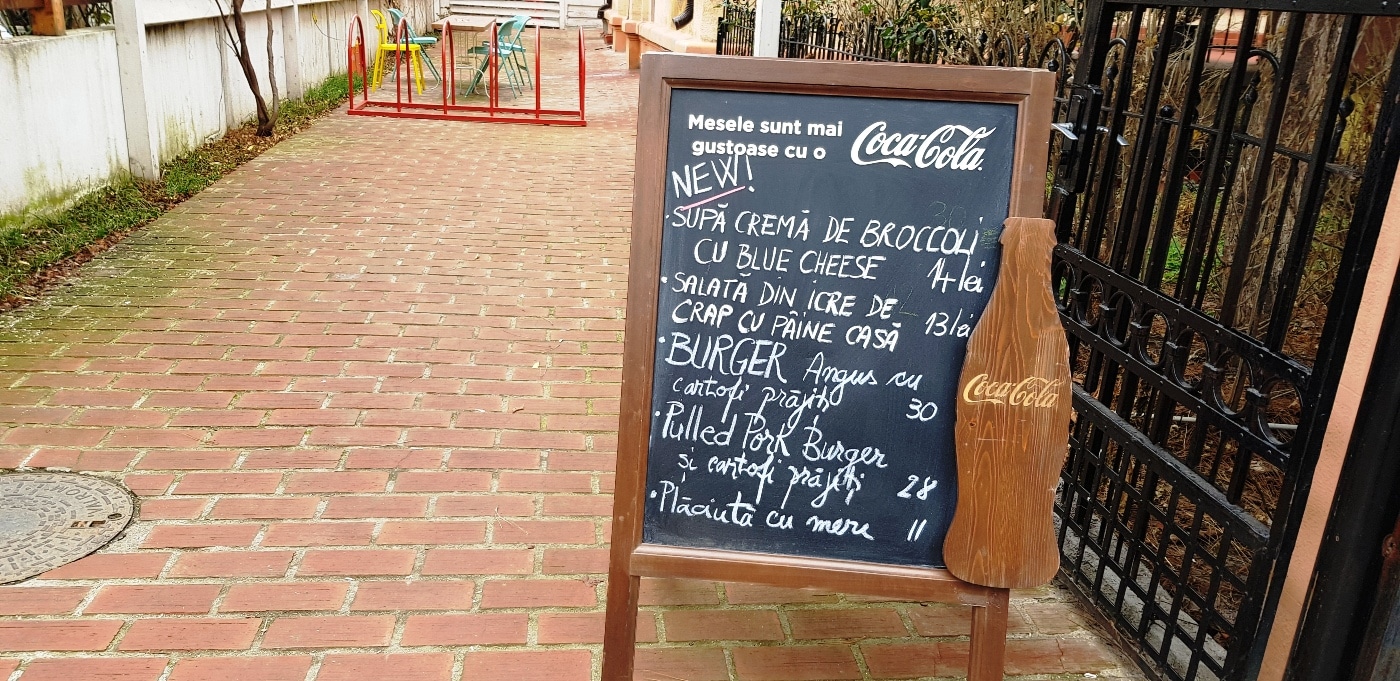 Mesele sunt mai
gustoase cu o Coca-Cola
NEW!
· SUPĂ CREMĂ DE BROCCOLI
CU BLUE CHEESE 14 lei
· SALATĂ DIN ICRE DE
CRAP CU PÂINE CASĂ 13 lei
· BURGER Angus cu
cartofi prăjiți 30
· Pulled Pork Burger
și cartofi prăjiți 28
· Plăciută cu mere 11
Coca-Cola